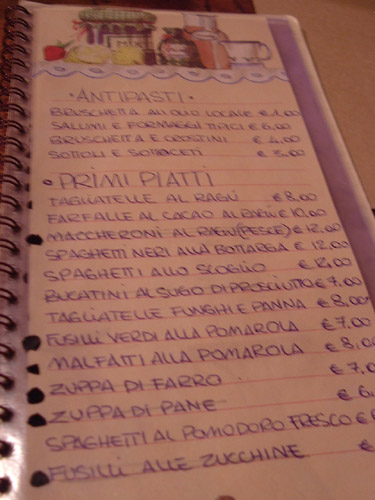 · ANTIPASTI ·
BRUSCHETTA ALL'OLIO LOCALE € 1,00
SALUMI E FORMAGGI TIPICI € 6,00
BRUSCHETTA E CROSTINI € 4,00
SOTTOLI E SOTTACETI € 3,00
• PRIMI PIATTI
TAGLIATELLE AL RAGÙ € 8,00
FARFALLE AL CACAO € 10,00
MACCHERONI AL (PESCE) € 12,00
SPAGHETTI NERI ALLA BOTTARGA € 12,00
SPAGHETTI ALLO SCOGLIO € 12,00
BUCATINI AL SUGO DI PROSCIUTTO € 7,00
TAGLIATELLE FUNGHI E PANNA € 8,00
FUSILLI VERDI ALLA POMAROLA € 7,00
MALFATTI ALLA POMAROLA € 8,0
ZUPPA DI FARRO € 7,0
ZUPPA DI PANE € 6,
SPAGHETTI AL POMODORO FRESCO €
FUSILLI ALLE ZUCCHINE €